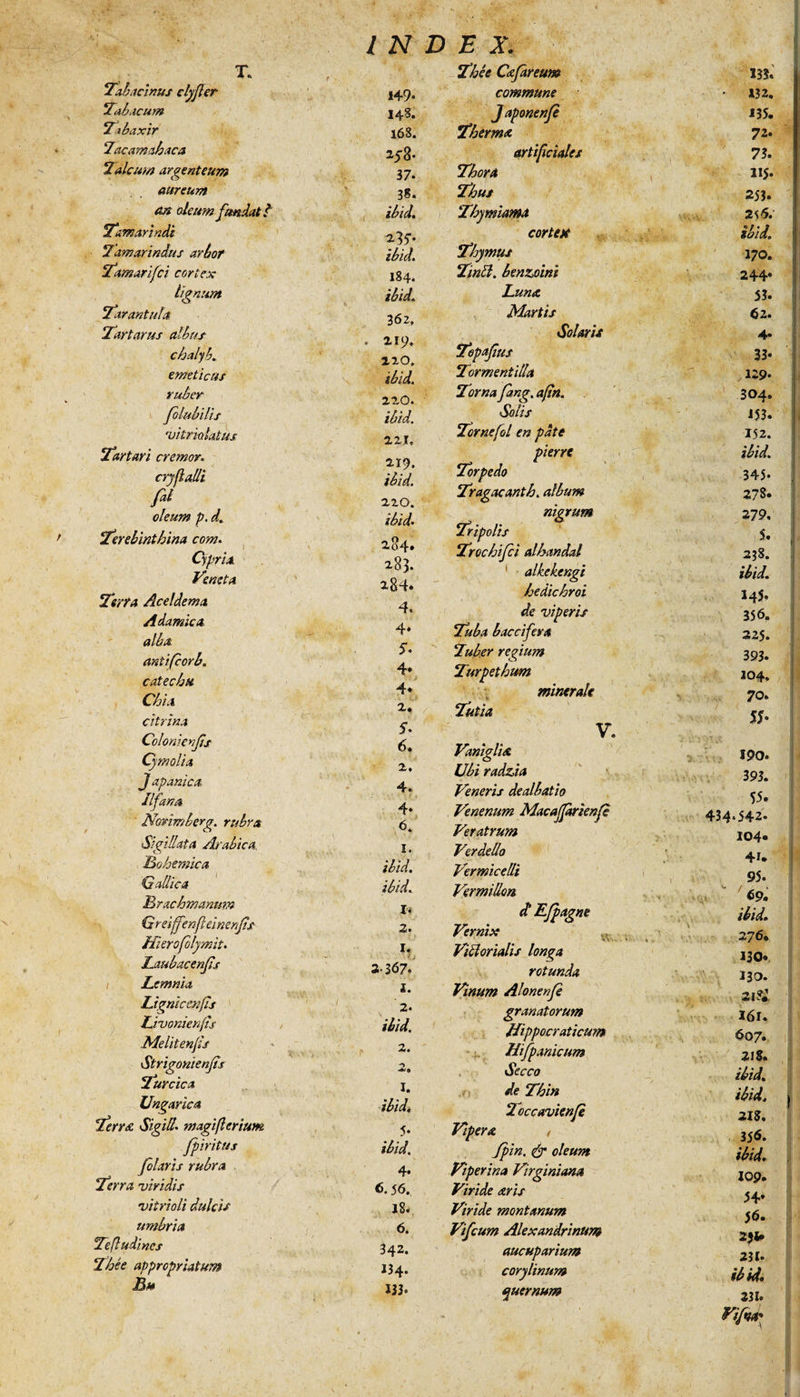 INDEX.
T.
Tabacinus clyſter 149.
Tabacum 148.
Tabaxir 168.
Tacamahaca 258.
Talcum argenteum 37.
aureum 38.
an oleum fundat? ibid.
Tamarindi 235.
Tamarindus arbor ibid.
Tamariſci cortex 184.
lignum ibid.
Tarantula 362,
Tartarus albus 219.
chalyb. 220.
emeticus ibid.
ruber 220.
ſolubilis ibid.
vitriolatus 221.
Tartari cremor. 219.
cryſtalli ibid.
ſal 220.
oleum p. d. ibid.
Terebinthina com. 284.
Cypria 283.
Veneta 284.
Terra Aceldema 4.
Adamica 4.
alba 5.
antiſcorb. 4.
catechu 4.
Chia 2.
citrina 5.
Colonienſis 6.
Cymolia 2.
Japanica 4.
Ilſana 4.
Norimberg. rubra 6.
Sigillata Arabica 1.
Bohemica ibid.
Gallica ibid.
Brachmanum 1.
Greiffenſteinenſis 2.
Hieroſolymit. 1.
Laubacenſis 2.367.
Lemnia 1.
Lignicenſis 2.
Livonienſis ibid.
Melitenſis 2.
Strigonienſis 2.
Turcica 1.
Ungarica ibid.
Terræ Sigill. magiſterium 5.
ſpiritus ibid.
ſolaris rubra 4.
Terra viridis 6.56.
vitrioli dulcis 18.
umbria 6.
Teſtudines 342.
Thée appropriatum 134.
Bu 133.
Thée Cæſareum 133.
commune 132.
Japonenſe 135.
Thermæ 72.
artificiales 73.
Thora 115.
Thus 253.
Thymiama 256.
cortex ibid.
Thymus 170.
Tinct. benzoini 244.
Lunæ 53.
Martis 62.
Solaris 4.
Topaſius 33.
Tormentilla 129.
Torna ſang. aſin. 304.
Solis 153.
Torneſol en pâte 152.
pierre ibid.
Torpedo 345.
Tragacanth. album 278.
nigrum 279.
Tripolis 5.
Trochiſci alhandal 238.
alkekengi ibid.
hedichroi 145.
de viperis 356.
Tuba baccifera 225.
Tuber regium 393.
Turpethum 104.
minerale 70.
Tutia 55.
V.
Vanigliæ 190.
Ubi radzia 393.
Veneris dealbatio 55.
Venenum Macaſſarienſe 434.542.
Veratrum 104.
Verdello 41.
Vermicelli 95.
Vermillon 69.
d'Eſpagne ibid.
Vernix 276.
Victorialis longa 130.
rotunda 130.
Vinum Alonenſe
granatorum 161.
Hippocraticum 607.
Hiſpanicum 218.
Secco ibid.
de Thin ibid.
Toccavienſe 218.
Vipera 356.
ſpin. & oleum ibid.
Viperina Virginiana 109.
Viride æris 54.
Viride montanum 56.
Viſcum Alexandrinum
aucuparium 231.
corylinum ibid.
quernum 231.
Viſna-